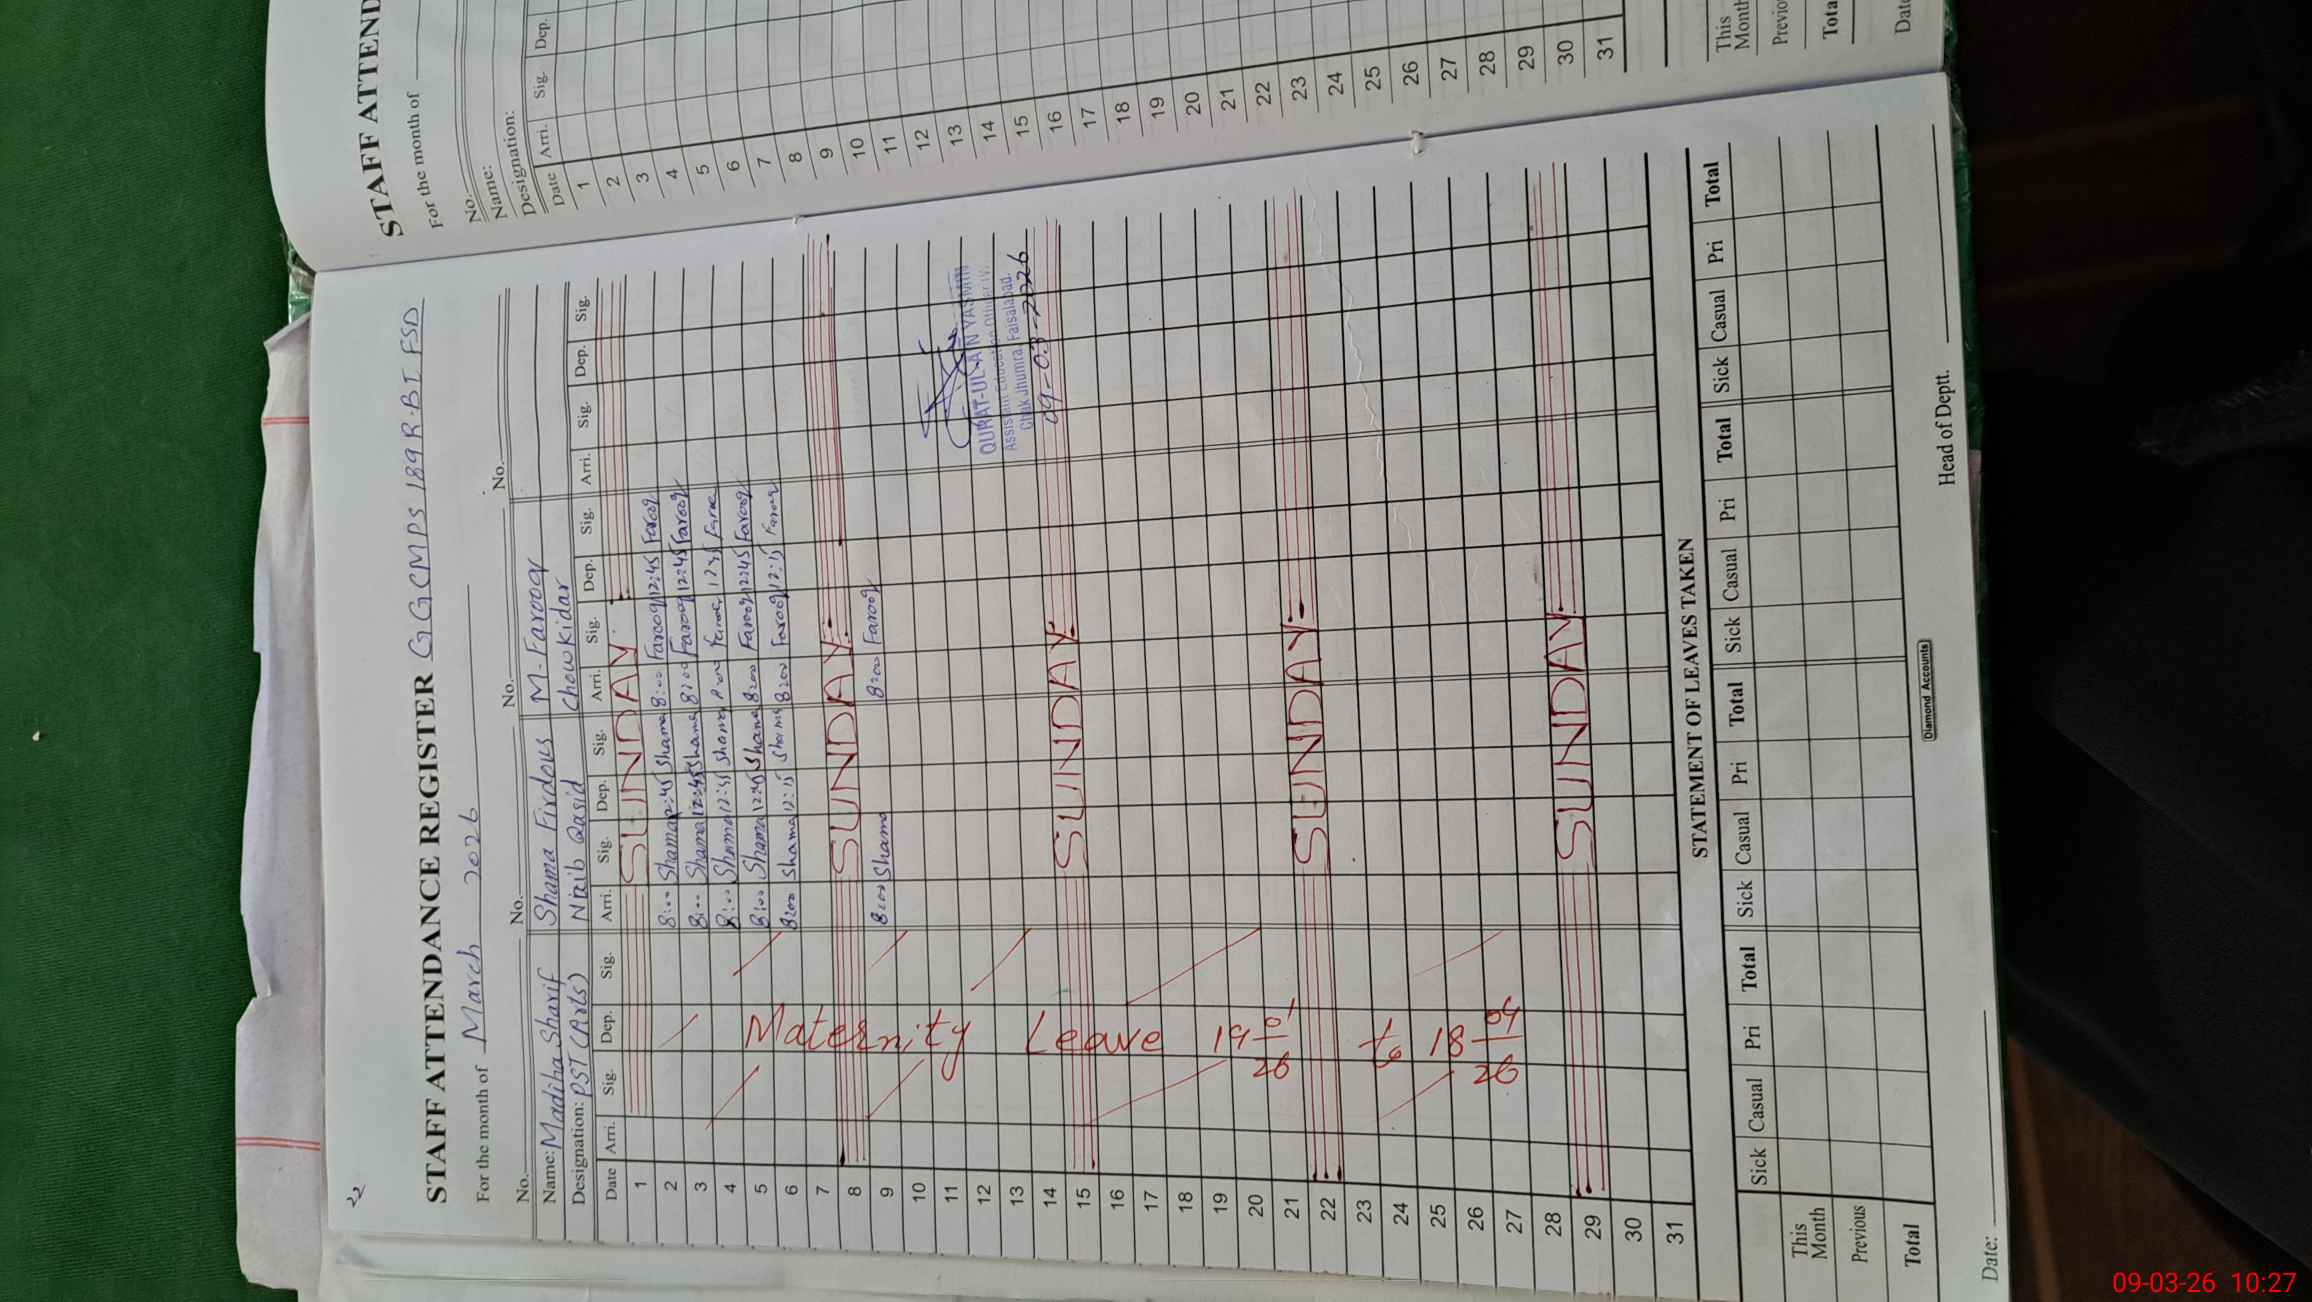 22
STAFF ATTENDANCE REGISTER GGCMPS 189 R.B I FSD
For the month of March 2026
No. No. No. No.
Name: Madiha Sharif Shama Firdous M-Farooq
Designation: PST (Arts) Naib Qasid Chowkidar
Date Arri. Sig. Dep. Sig. Arri. Sig. Dep. Sig. Arri. Sig. Dep. Sig. Arri. Sig. Dep. Sig.
1 SUNDAY
2 8:00 Shama 12:45 Shama 8:00 Farooq 12:45 Farooq
3 8:00 Shama 12:45 Shama 8:00 Farooq 12:45 Farooq
4 8:00 Shama 12:45 Shama
5 8:00 Shama 12:45 Shama 8:00 Farooq 12:45 Farooq
6 8:00 Shama 12:15 Shama 8:00 Farooq 12:15 Farooq
7
8 SUNDAY
9 8:00 Shama 8:00 Farooq
10
11
12
13
14
15 SUNDAY
16
17
18
19
20
21
22 SUNDAY
23
24
25
26
27
28
29 SUNDAY
30
31
Maternity Leave 19 01/26 to 18 04/26
QURAT-UL-AIN YASMIN
Assistant Education Officer IV.
Chak Jhumra, Faisalabad.
09-03-2026
STATEMENT OF LEAVES TAKEN
Sick Casual Pri Total Sick Casual Pri Total Sick Casual Pri Total Sick Casual Pri Total
This Month
Previous
Total
Date: Head of Deptt.
Diamond Accounts
STAFF ATTEND
For the month of
No.
Name:
Designation:
Date Arri. Sig. Dep.
1
2
3
4
5
6
7
8
9
10
11
12
13
14
15
16
17
18
19
20
21
22
23
24
25
26
27
28
29
30
31
This
Month
Previo
Tota
Date
09-03-26 10:27